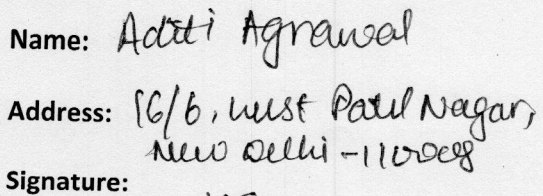 Name: Aditi Agrawal
Address: 16/6, West Patel Nagar,
New Delhi - 110008
Signature: